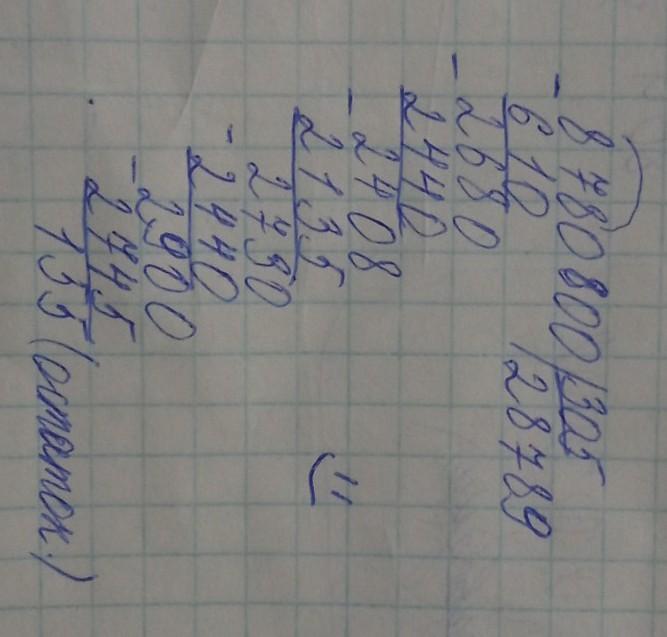 - 8780800 | 305
610 | 28789
- 2680
2440
- 2408
2135
- 2730
2440
- 2900
2745
155 (остаток)